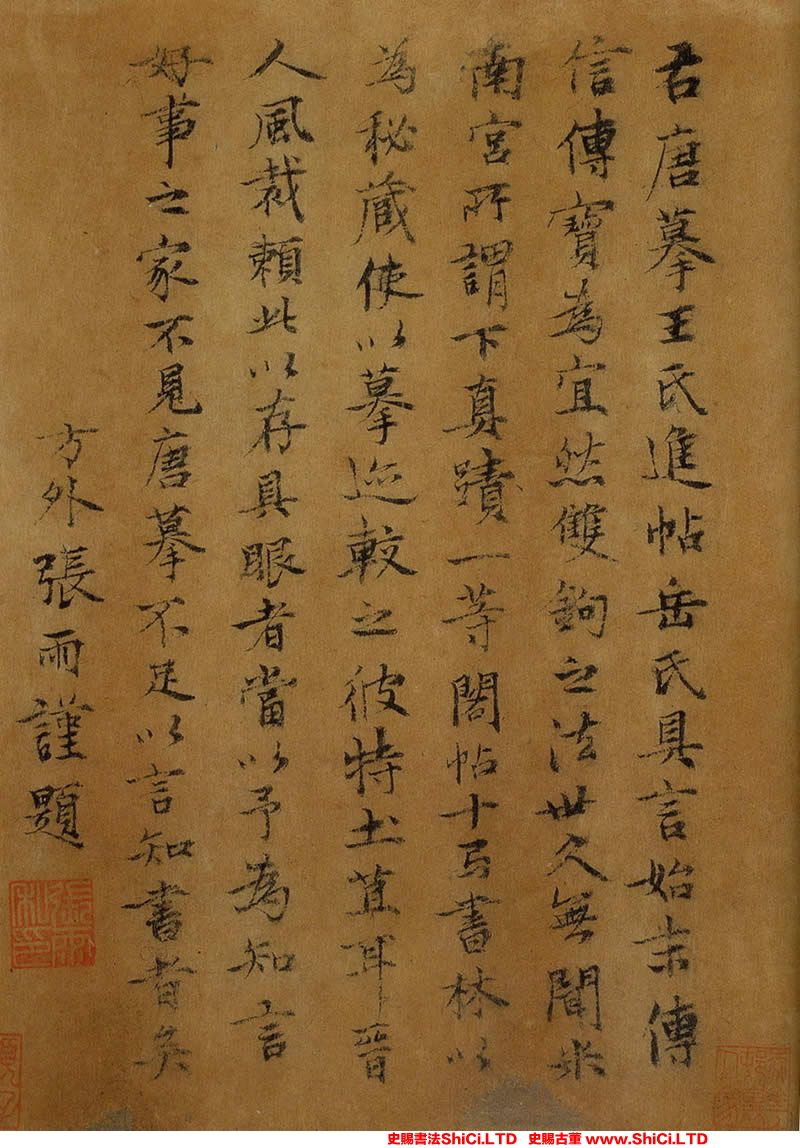 右唐摹王氏進帖岳氏具言始末傳
信傳寶為宜然雙鉤之法世久無聞米
南宮所謂下真蹟一等閣帖十弓書林以
為秘藏使以摹迹較之彼特土苴耳晉
人風裁賴此以存具眼者當以予為知言
好事之家不見唐摹不足以言知書者矣
方外張雨謹題
史賜書法ShiCi.LTD 史賜古董 www.ShiCi.LTD